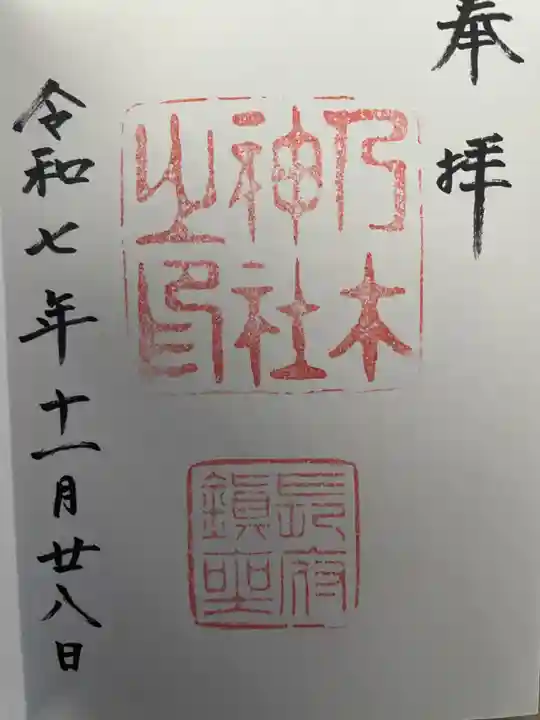 奉拝
乃木
神社
之印
長府
鎮座
令和七年十一月廿八日